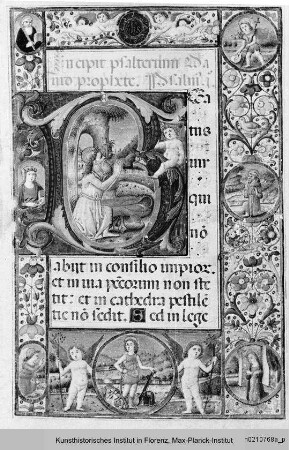 Incipit psalterium Da
uid prophete. Psalmus .i.
B
ea
tus
uir
qui
nō
abijt in consilio impior.
et in uia pẽcorum non ste
tit: et in cathedra pestilē
tie nō sedit. Sed in lege
Kunsthistorisches Institut in Florenz, Max-Planck-Institut
n0210768a_p